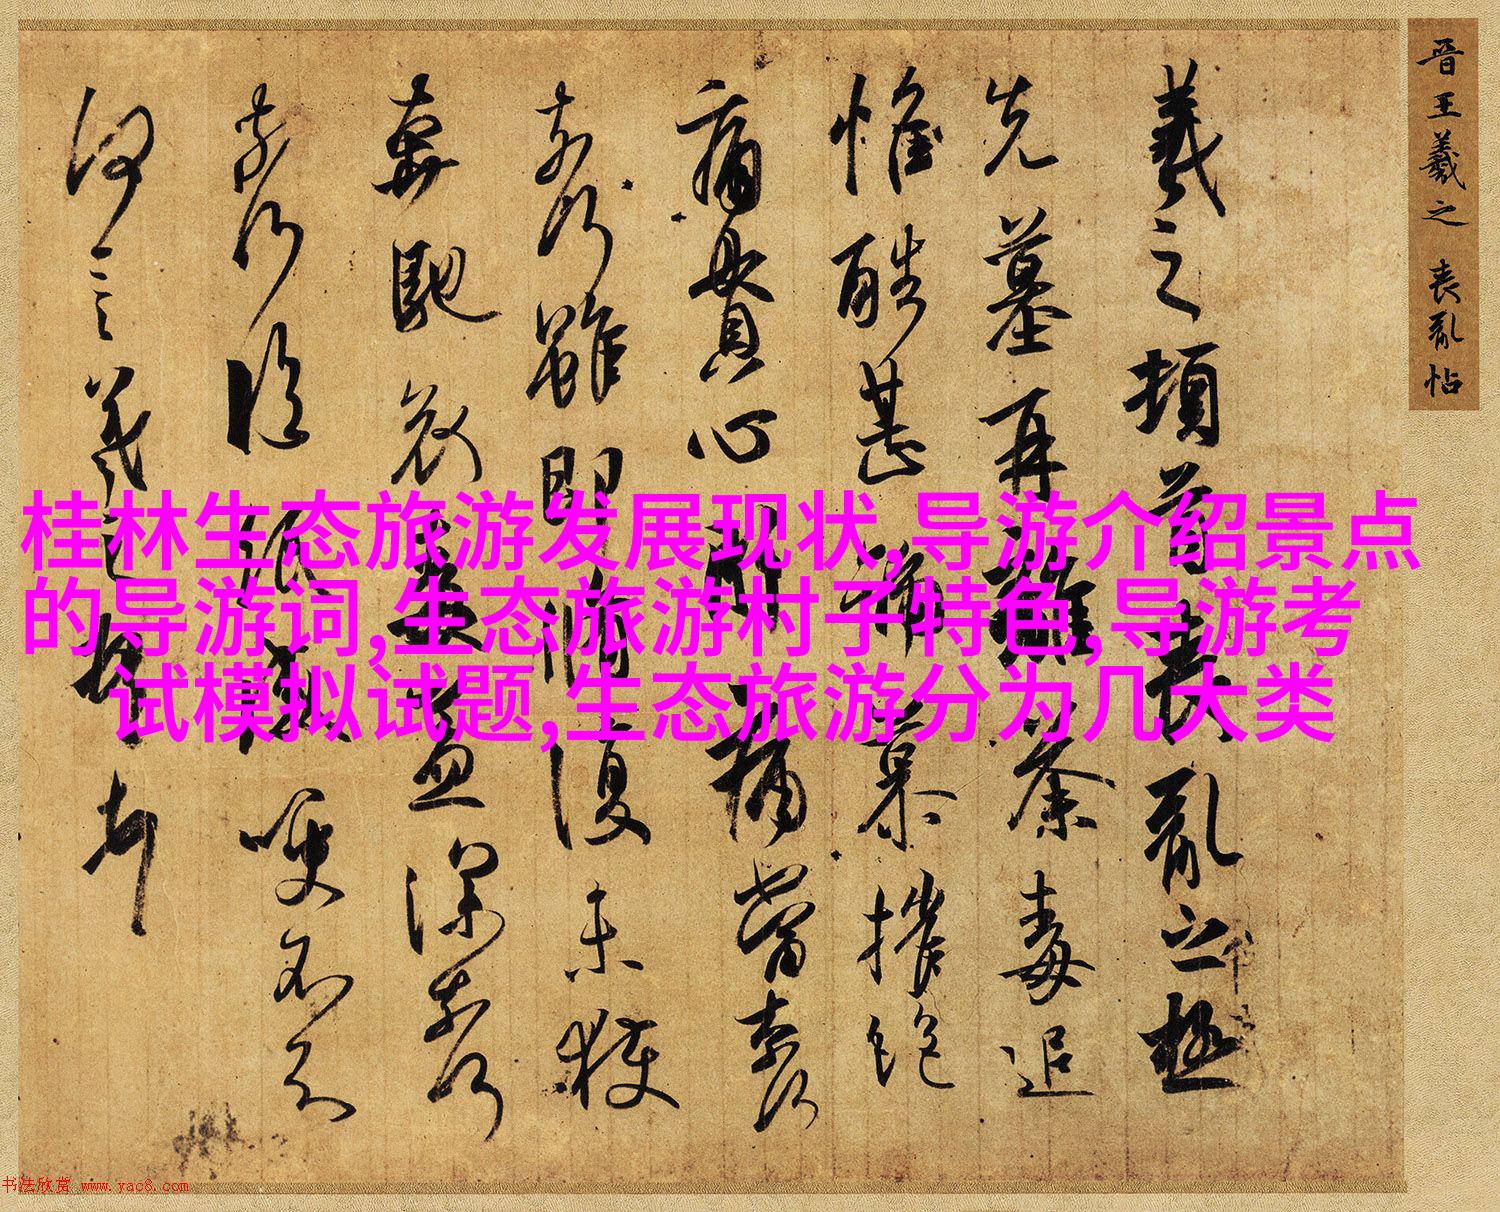 晋王羲之 喪亂帖
羲之頓首喪亂之極
先墓再離荼毒追
惟酷甚號慕摧絕
痛貫心肝痛當奈何
奈何雖即脩復未獲
奔馳哀毒益深奈何
奈何臨紙感哽不知
何言羲之頓首
桂林生态旅游发展现状,导游介绍景点
的导游词,生态旅游村子特色,导游考
试模拟试题,生态旅游分为几大类
书法欣赏 www.yac8.com